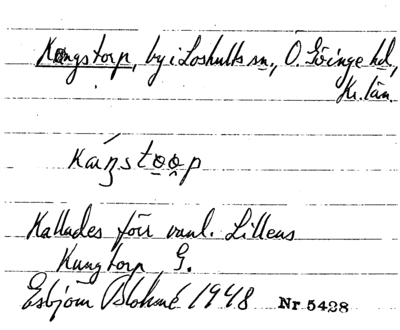 Kongstorp, by i Loshults sn., Ö. Göinge hd,
Kr. län.
Kallades förr vanl. Lillens
Kungtorp, G.
Esbjörn Blohmé 1948 Nr 5428